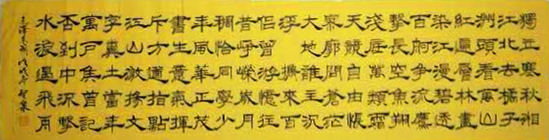 獨立寒秋湘
江北去橘子
洲頭看萬山
紅遍層林盡
染漫江碧透
百舸爭流鷹
擊長空魚翔
淺底萬類霜
天競自由悵
寥廓問蒼茫
大地誰主沉
浮攜來百
侶曾游憶往
昔崢嶸歲月
稠恰同學少
年風華正茂
書生意氣揮
斥方遒指點
江山激揚文
字糞土當年
萬戶侯曾記
否到中流擊
水浪遏飛舟